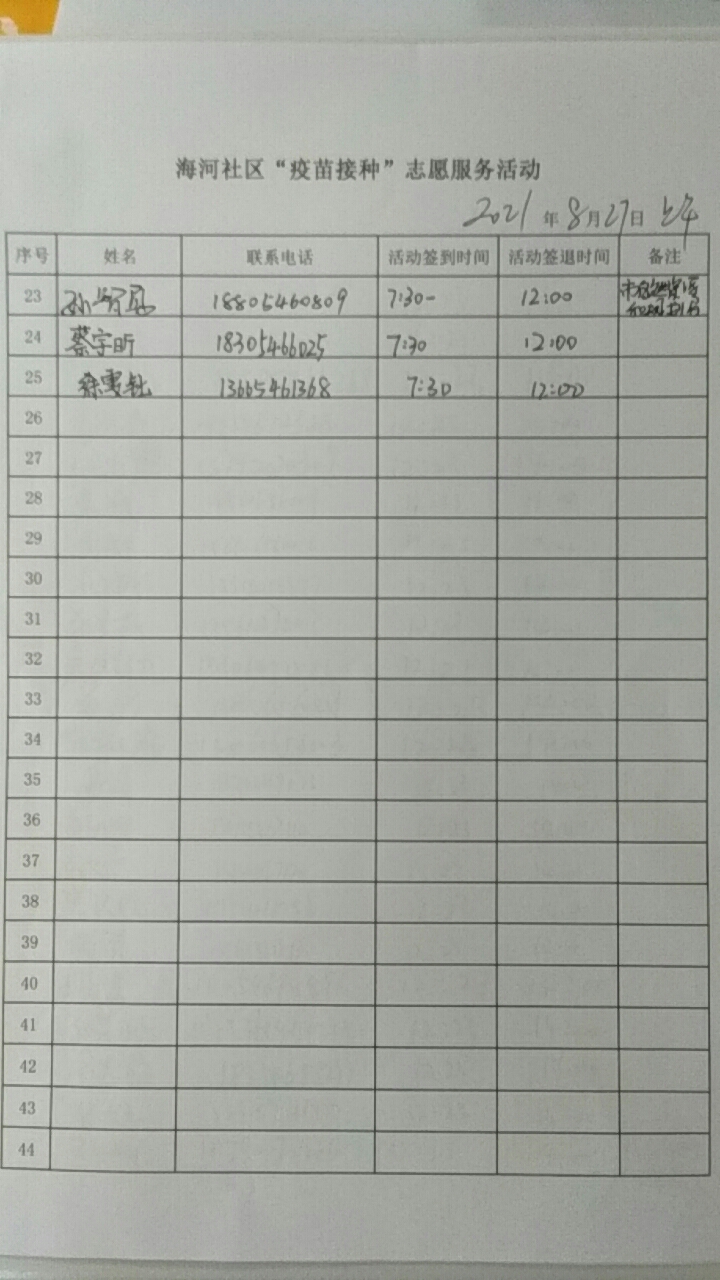 海河社区“疫苗接种”志愿服务活动
2021 年 8 月 27 日 上午
序号 姓名 联系电话 活动签到时间 活动签退时间 备注
23 孙 18805460809 7:30- 12:00
24 蔡宇昕 18305466025 7:30 12:00
25 徐雯钰 13665461368 7:30 12:00
26
27
28
29
30
31
32
33
34
35
36
37
38
39
40
41
42
43
44